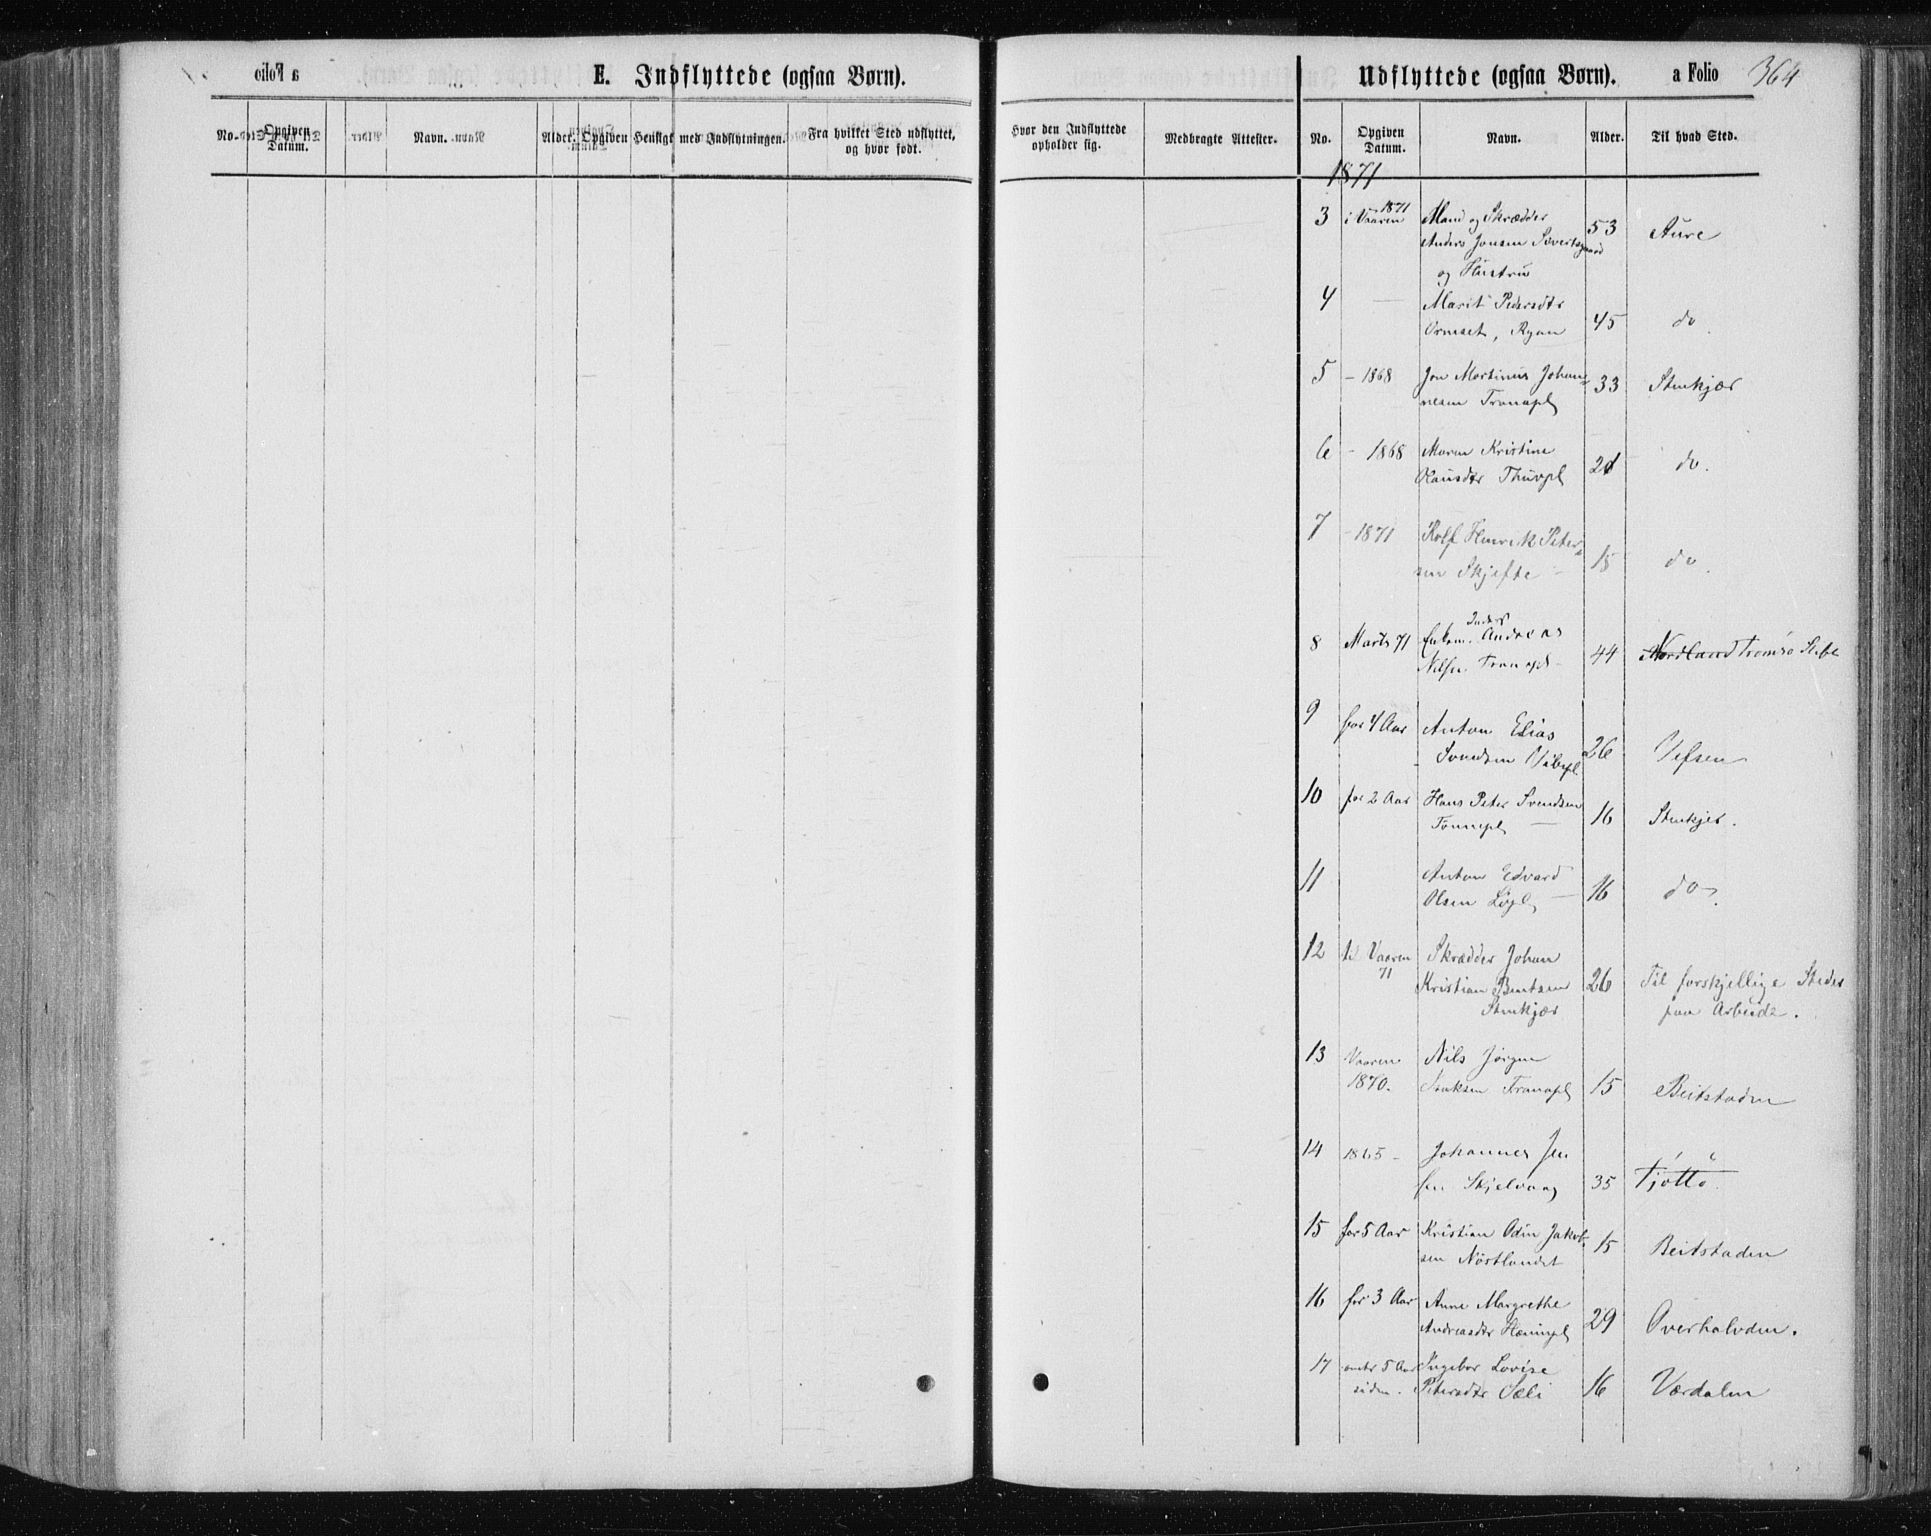 E. Indflyttede (ogsaa Børn).
No.
Opgiven Datum.
Navn.
Alder.
Opgiven Hensigt med Indflytningen.
Fra hvilket Sted udflyttet, og hvor født.
Hvor den Indflyttede opholder sig.
Medbragte Attester.
Udflyttede (ogsaa Børn).
a Folio 364
No.
Opgiven Datum.
Navn.
Alder.
Til hvad Sted.
1871
3 i Vaaren 1871 Mand og Skrædder
Anders Jonsen 53 Aure
og Hustru
4 — Marit Pedersdtr
Ormset, Ryan 45 do.
5 - 1868 Jon Martinus Johan-
nesen Tranapl 33 Stenkjær
6 - 1868 Maren Kristine
Olausdtr Thuvpl 21 do.
7 - 1871 Rolf Henrik Peter-
sen Skjefte 15 do.
8 Marts 71 Enkem. Anders Andreas
Nilsen Tranapl 44 Nordland Tromsø Stift
9 for 4 Aar Anton Elias
Svendsen 26 Vefsen
10 for 2 Aar Hans Peter Svendsen
Tønnepl — 16 Stenkjer.
11 Anton Edvard
Olsen Løpl — 16 do.
12 Vaaren 71 Skrædder Johan
Kristian Bentsen 26 Til forskjellige Steder
Stenkjær paa Arbeide.
13 Vaaren Nils Jørgen
1870. Isaksen Tranapl 15 Beitstaden
14 1865 - Johannes Jen
sen Skjelvaag 35 Tjøttø
15 for 5 Aar Kristian Odin Jakob-
sen Nøstlandet 15 Beitstaden
16 for 3 Aar Anne Margrethe
Andreasdtr 29 Overhalvden.
17 omtr 5 Aar Ingebor Lovise
siden. Petersdtr Sæli 16 Værdalen